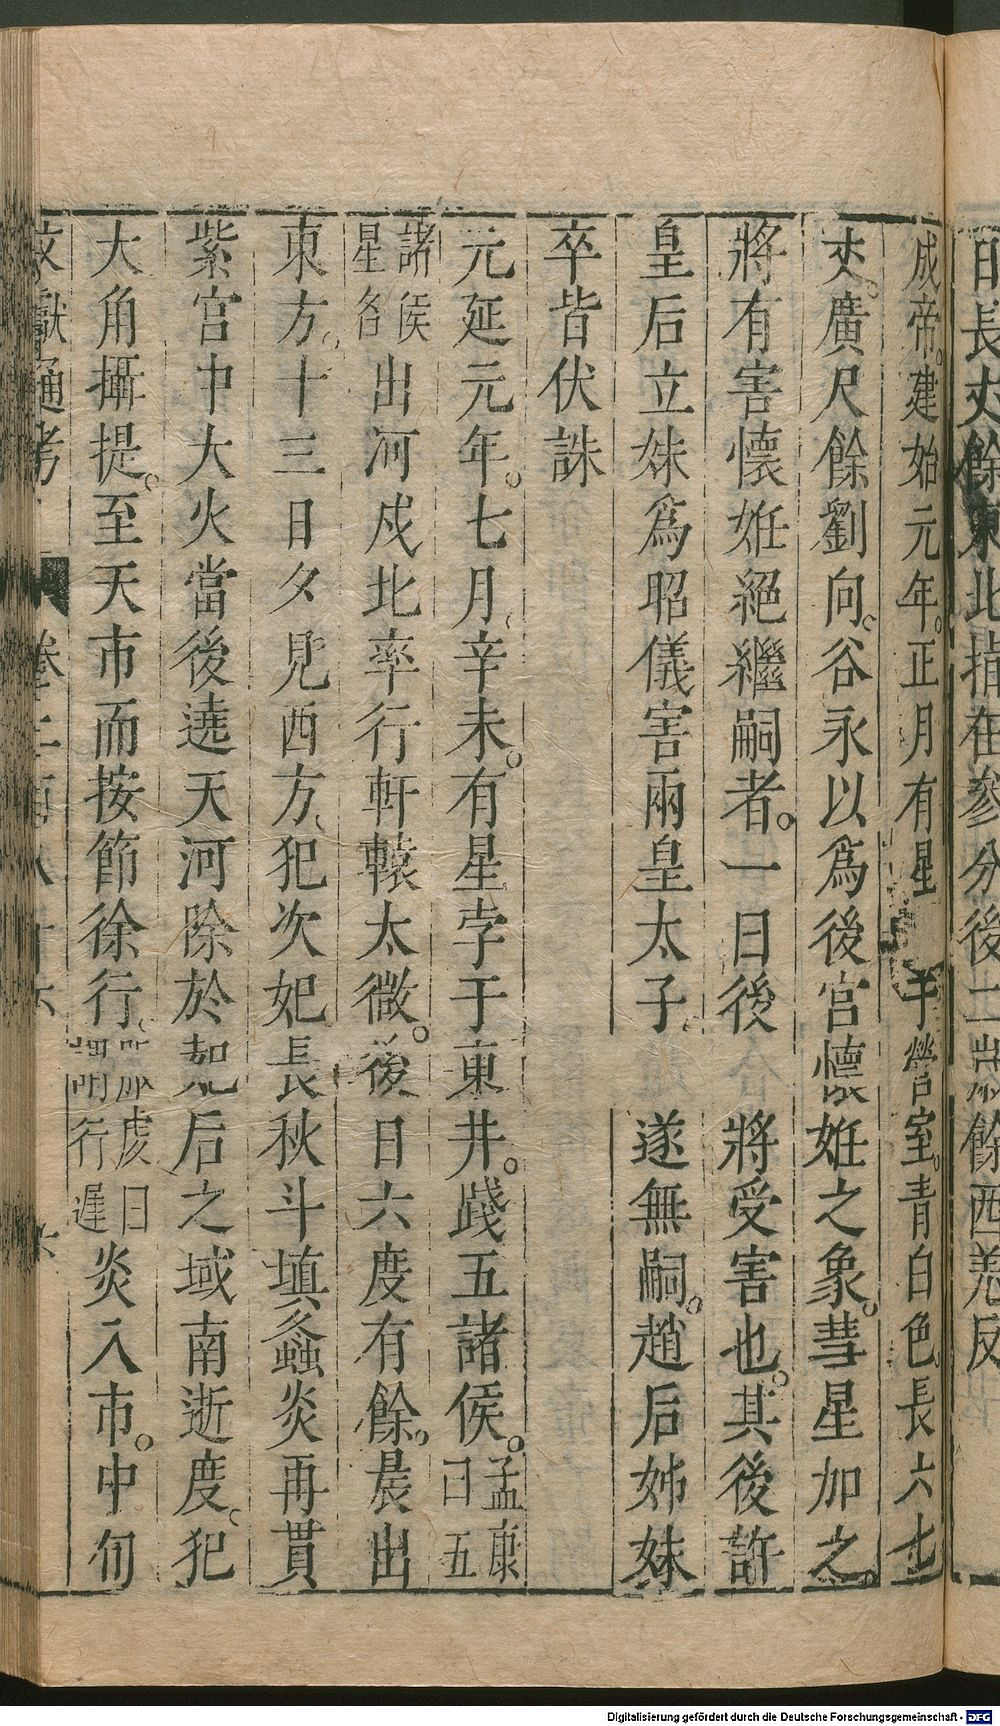 日長丈餘東北指在參分後二
餘西羌反
成帝建始元年正月有星孛于營室青白色長六七
丈廣尺餘劉向谷永以爲後宮懷姙之象彗星加之
將有害懷姙絕繼嗣者一曰後 將受害也其後許
皇后立妹爲昭儀害兩皇太子 遂無嗣趙后姊妹
卒皆伏誅
元延元年七月辛未有星孛于東井踐五諸侯孟康曰五
諸侯星名出河戍北率行軒轅太微後日六度有餘晨出
東方十三日夕見西方犯次妃長秋斗填蠭炎再貫
紫宮中大火當後達天河除於妃后之域南逝度犯
大角攝提至天市而按節徐行 行遲炎入市中旬
文獻通考
Digitalisierung gefördert durch die Deutsche Forschungsgemeinschaft - DFG